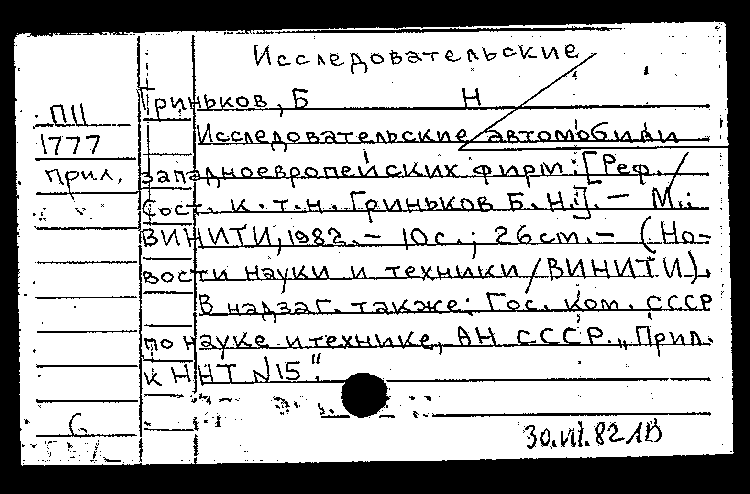 Исследовательские
Гриньков, Б Н
П11
1777
прил.
Исследовательские автомобили
западноевропейских фирм: [Реф.
сост. к.т.н. Гриньков Б.Н.]. — М.:
ВИНИТИ, 1982. — 10 с.; 26 см. — (Но-
вости науки и техники / ВИНИТИ).
В надзаг. также: Гос. ком. СССР
по науке и технике, АН СССР. „Прил.
к ННТ №15".
30.VII.82 ЛВ